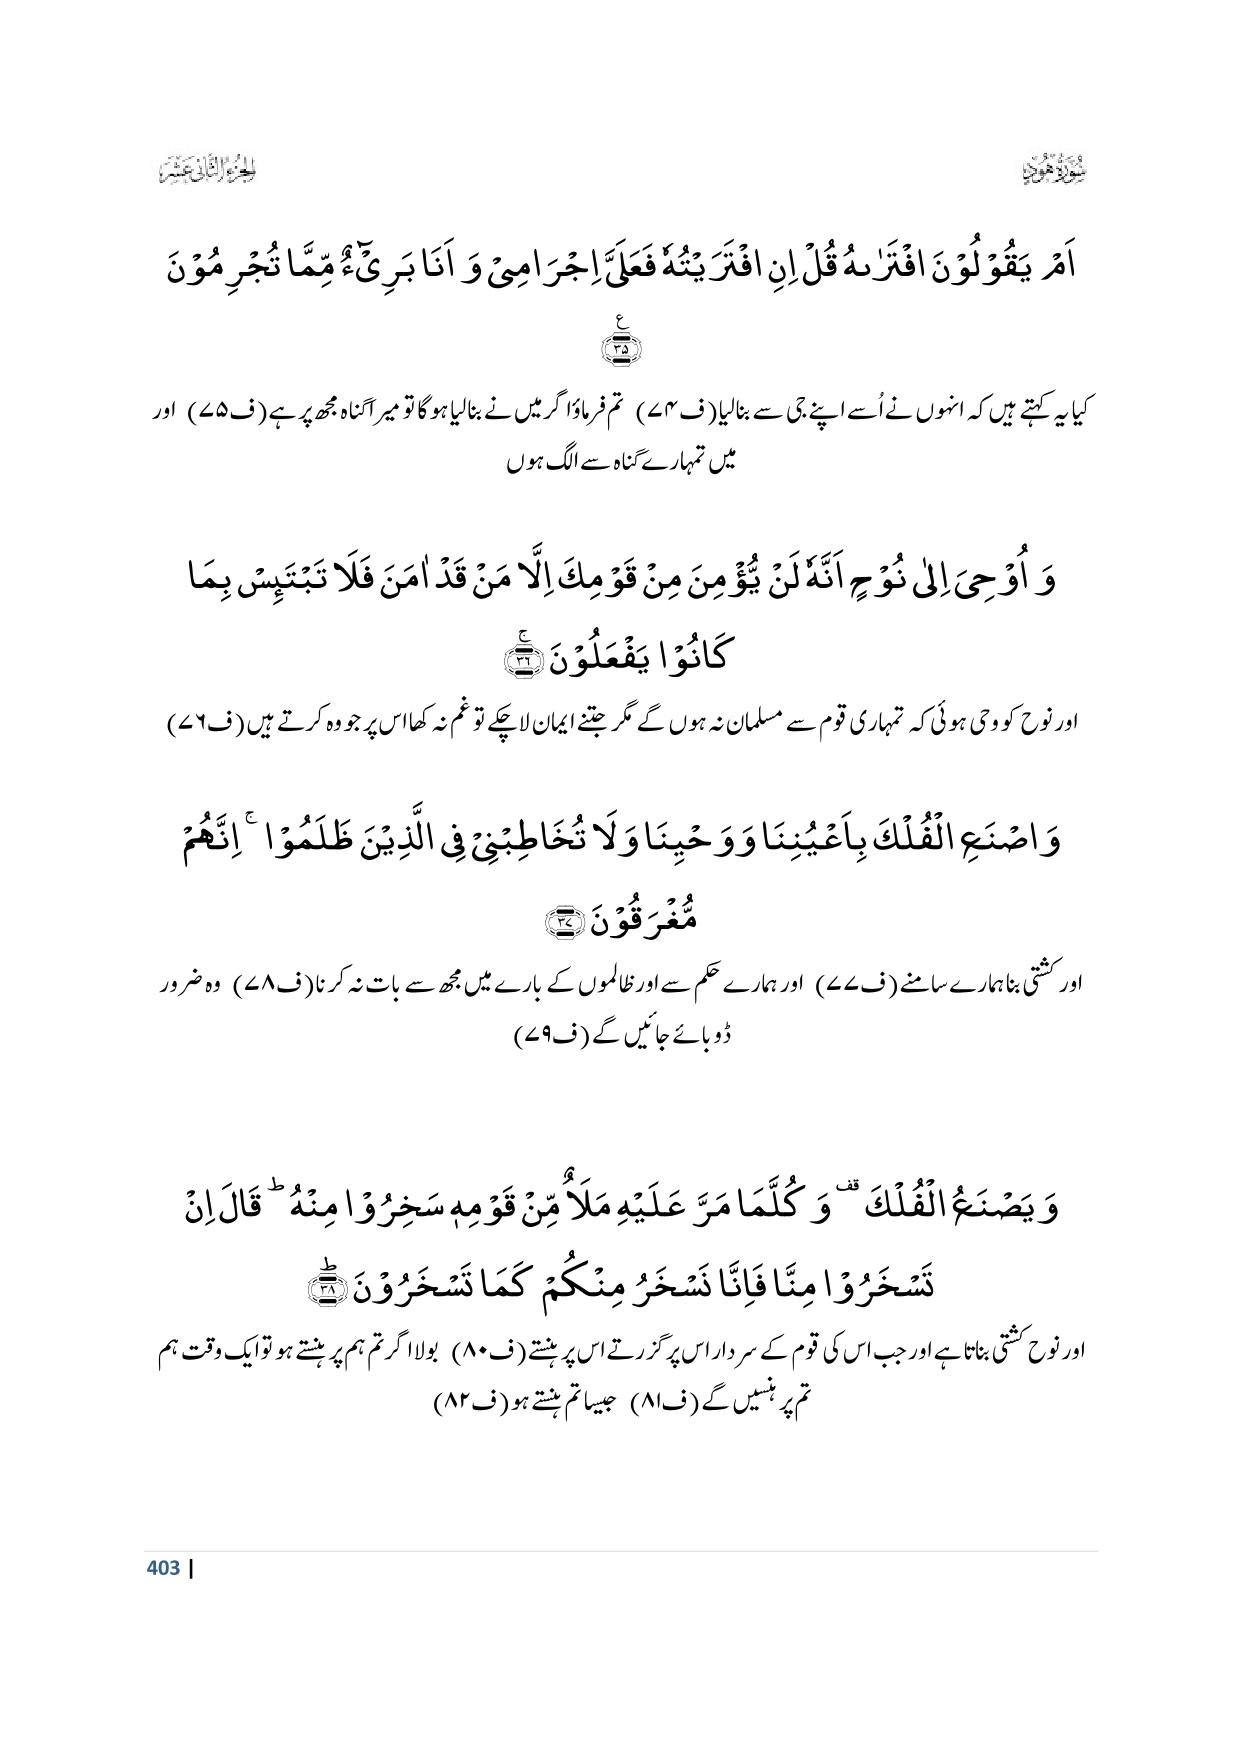 سُوْرَةُ هُوْدٍ
الجزء الثانی عشر
اَمْ یَقُوْلُوْنَ افْتَرٰىهُ قُلْ اِنِ افْتَرَیْتُهٗ فَعَلَیَّ اِجْرَامِیْ وَ اَنَا بَرِیْٓءٌ مِّمَّا تُجْرِمُوْنَ
ع ﴿۳۵﴾
کیا یہ کہتے ہیں کہ انہوں نے اُسے اپنے جی سے بنالیا(ف۷۴) تم فرماؤ اگر میں نے بنالیا ہوگا تو میرا گناہ مجھ پر ہے(ف۷۵) اور
میں تمہارے گناہ سے الگ ہوں
وَ اُوْحِیَ اِلٰى نُوْحٍ اَنَّهٗ لَنْ یُّؤْمِنَ مِنْ قَوْمِكَ اِلَّا مَنْ قَدْ اٰمَنَ فَلَا تَبْتَىٕسْ بِمَا
كَانُوْا یَفْعَلُوْنَۚۖ ﴿۳۶﴾
اور نوح کو وحی ہوئی کہ تمہاری قوم سے مسلمان نہ ہوں گے مگر جتنے ایمان لاچکے تو غم نہ کھا اس پر جو وہ کرتے ہیں(ف۷۶)
وَ اصْنَعِ الْفُلْكَ بِاَعْیُنِنَا وَ وَحْیِنَا وَ لَا تُخَاطِبْنِیْ فِی الَّذِیْنَ ظَلَمُوْاۚ اِنَّهُمْ
مُّغْرَقُوْنَ ﴿۳۷﴾
اور کشتی بنا ہمارے سامنے(ف۷۷) اور ہمارے حکم سے اور ظالموں کے بارے میں مجھ سے بات نہ کرنا(ف۷۸) وہ ضرور
ڈوبائے جائیں گے(ف۷۹)
وَ یَصْنَعُ الْفُلْكَ قف وَ كُلَّمَا مَرَّ عَلَیْهِ مَلَاٌ مِّنْ قَوْمِهٖ سَخِرُوْا مِنْهُؕ قَالَ اِنْ
تَسْخَرُوْا مِنَّا فَاِنَّا نَسْخَرُ مِنْكُمْ كَمَا تَسْخَرُوْنَؕ ﴿۳۸﴾
اور نوح کشتی بناتا ہے اور جب اس کی قوم کے سردار اس پر گزرتے اس پر ہنستے(ف۸۰) بولا اگر تم ہم پر ہنستے ہو تو ایک وقت ہم
تم پر ہنسیں گے(ف۸۱) جیسا تم ہنستے ہو(ف۸۲)
403 |